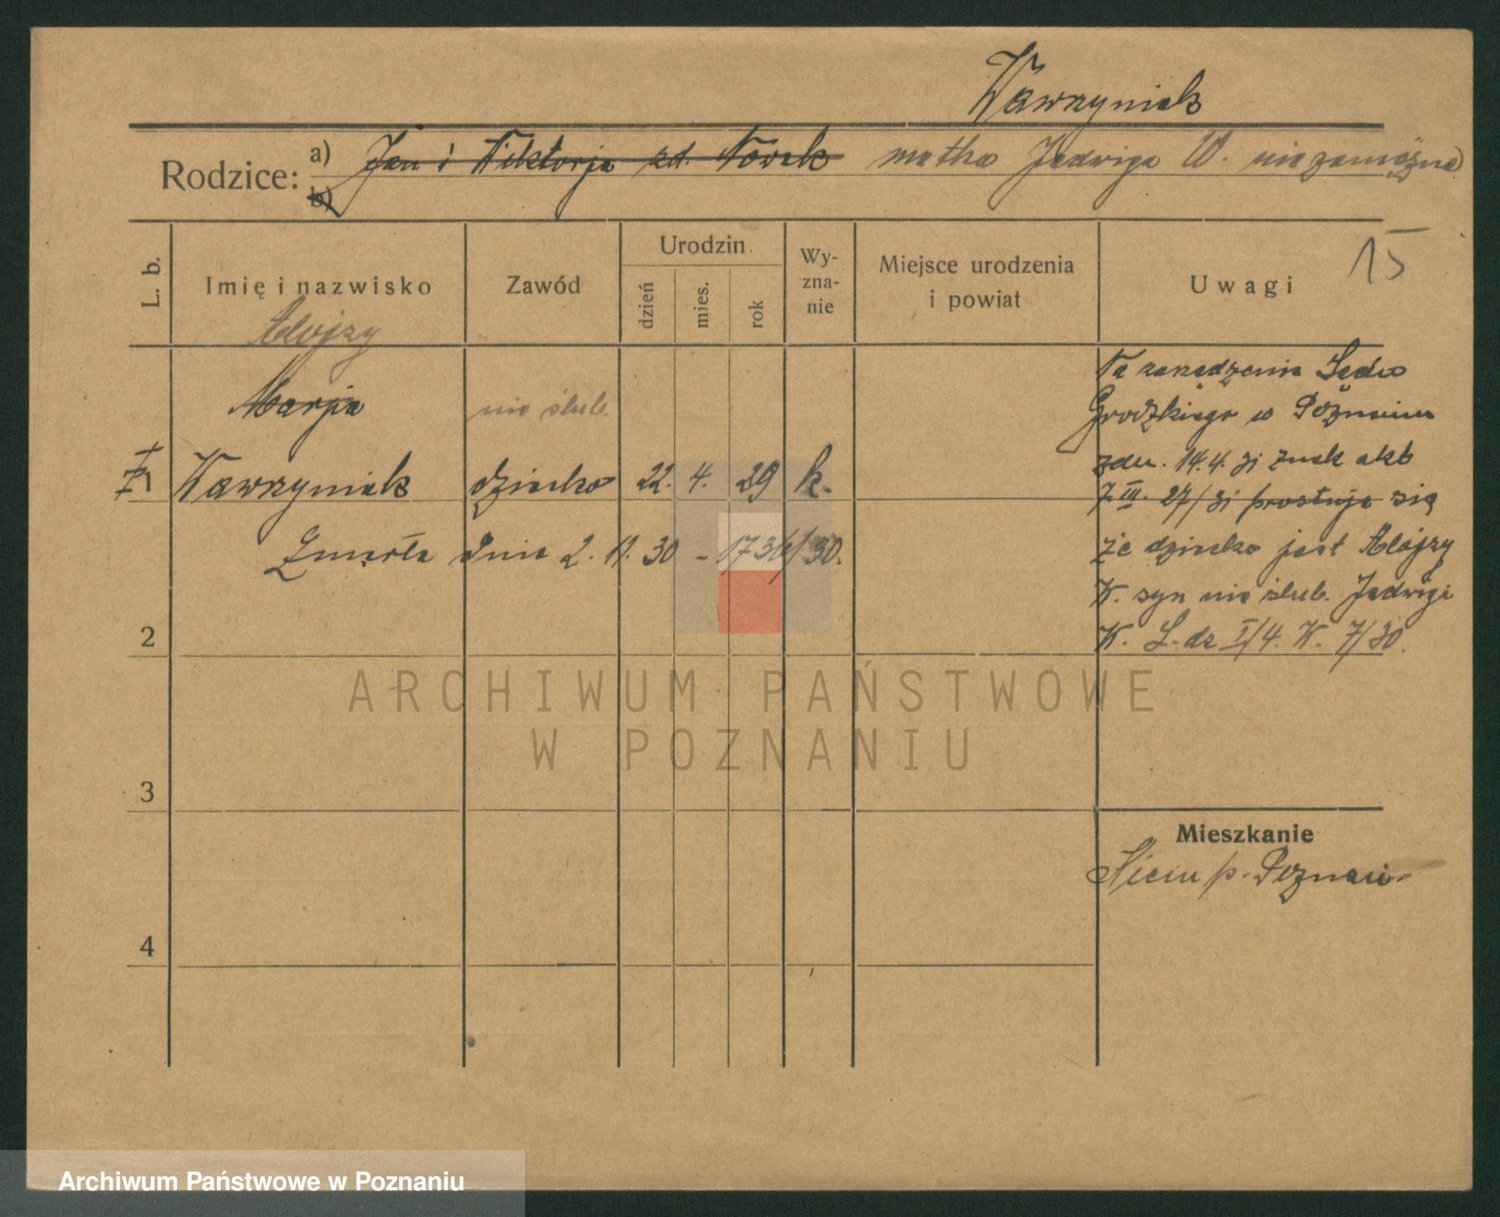 Wawrzyniak
Rodzice: a) Jan i Wiktorja zd. Nowak matka Jadwiga W. niezamężna
b)
15
L. b. Imię i nazwisko Zawód Urodzin dzień mies. rok Wy-zna-nie Miejsce urodzenia i powiat Uwagi
Alojzy
Marja nieślub.
1 Wawrzyniak dziecko 22. 4. 29 k.
Zmarła dnia 2. 11. 30 - 1736/30.
Na zarządzenie Sądu
Grodzkiego w Poznaniu
zdn. 14.4. 31 znak akt
7 III. 27/31 prostuje się
że dziecko jest Alojzy
W. syn nieślub. Jadwigi
W. L. dz I/4. W. 7/30.
2
3
4
Mieszkanie
p. Poznań
ARCHIWUM PAŃSTWOWE
W POZNANIU
Archiwum Państwowe w Poznaniu